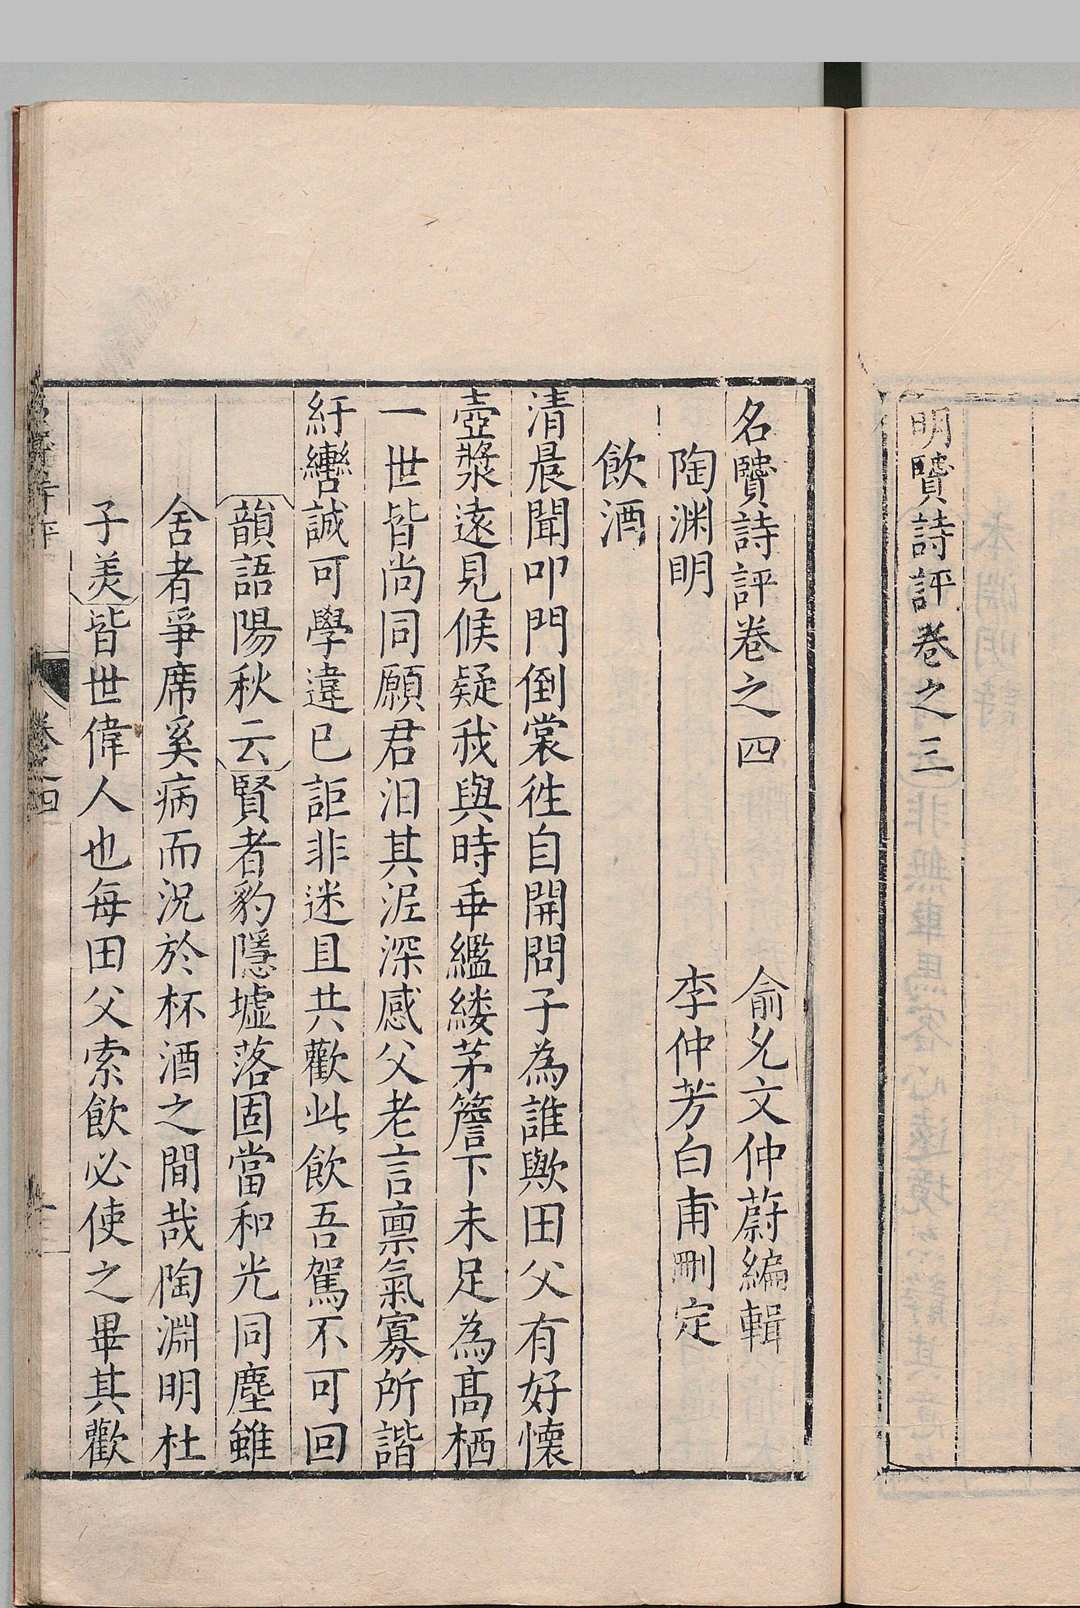 明賢詩評卷之三
名賢詩評卷之四
俞允文仲蔚編輯
陶渊明
李仲芳白甫刪定
飲酒
清晨聞叩門倒裳徃自開問子為誰歟田父有好懷
壺漿遠見候疑我與時乖繿縷茅簷下未足為髙栖
一世皆尚同願君汨其泥深感父老言禀氣寡所諧
紆轡誠可學違已詎非迷且共歡此飲吾駕不可回
韻語陽秋云賢者豹隱墟落固當和光同塵雖
舍者爭席奚病而況於杯酒之間哉陶淵明杜
子美皆世偉人也每田父索飲必使之畢其歡
卷之四